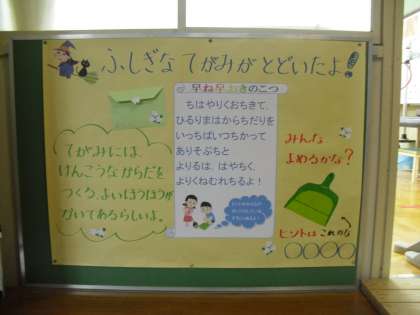 ふしぎな てがみが とどいたよ!
早ね早おきのこつ
ちはやりくおちきて、
ひるりまはからちだりを
いっちぱいつちかって
ありそぶちと
よりるは、はやちく、
よりくねむれちるよ!
てがみには、
けんこうなからだを
つくる、よいほうほうが
かいてあるらしいよ。
みんな
よめるかな?
ヒントは これのう